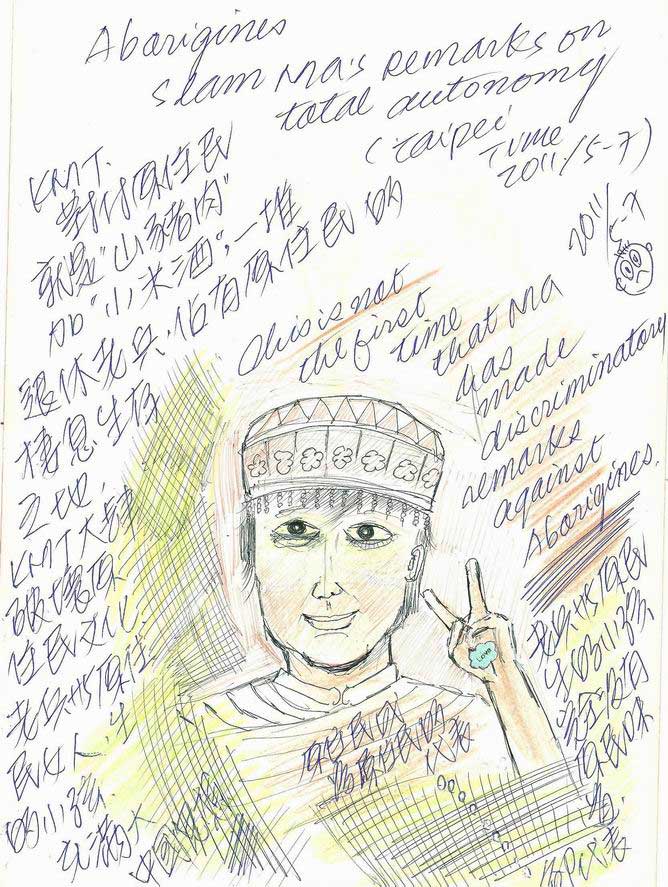 Aborigines
slam Ma's Remarks on
total autonomy
(Taipei
Time
2011/5-7)
KMT.
對付原住民
就是"山豬肉"
加"小米酒",一堆
退休老兵,佔有原住民的
棲息生存
之地.
KMT大肆
破壞原
住民文化.
老兵與原住
民女人生
的小孩.
充滿大
中國思想
2011/5-7
This is not
the first
time
that Ma
has
made
discriminatory
remarks
against
Aborigines.
老兵與原民
生的小孩
完全沒有
原民味
道.
Love
原住民的
代表